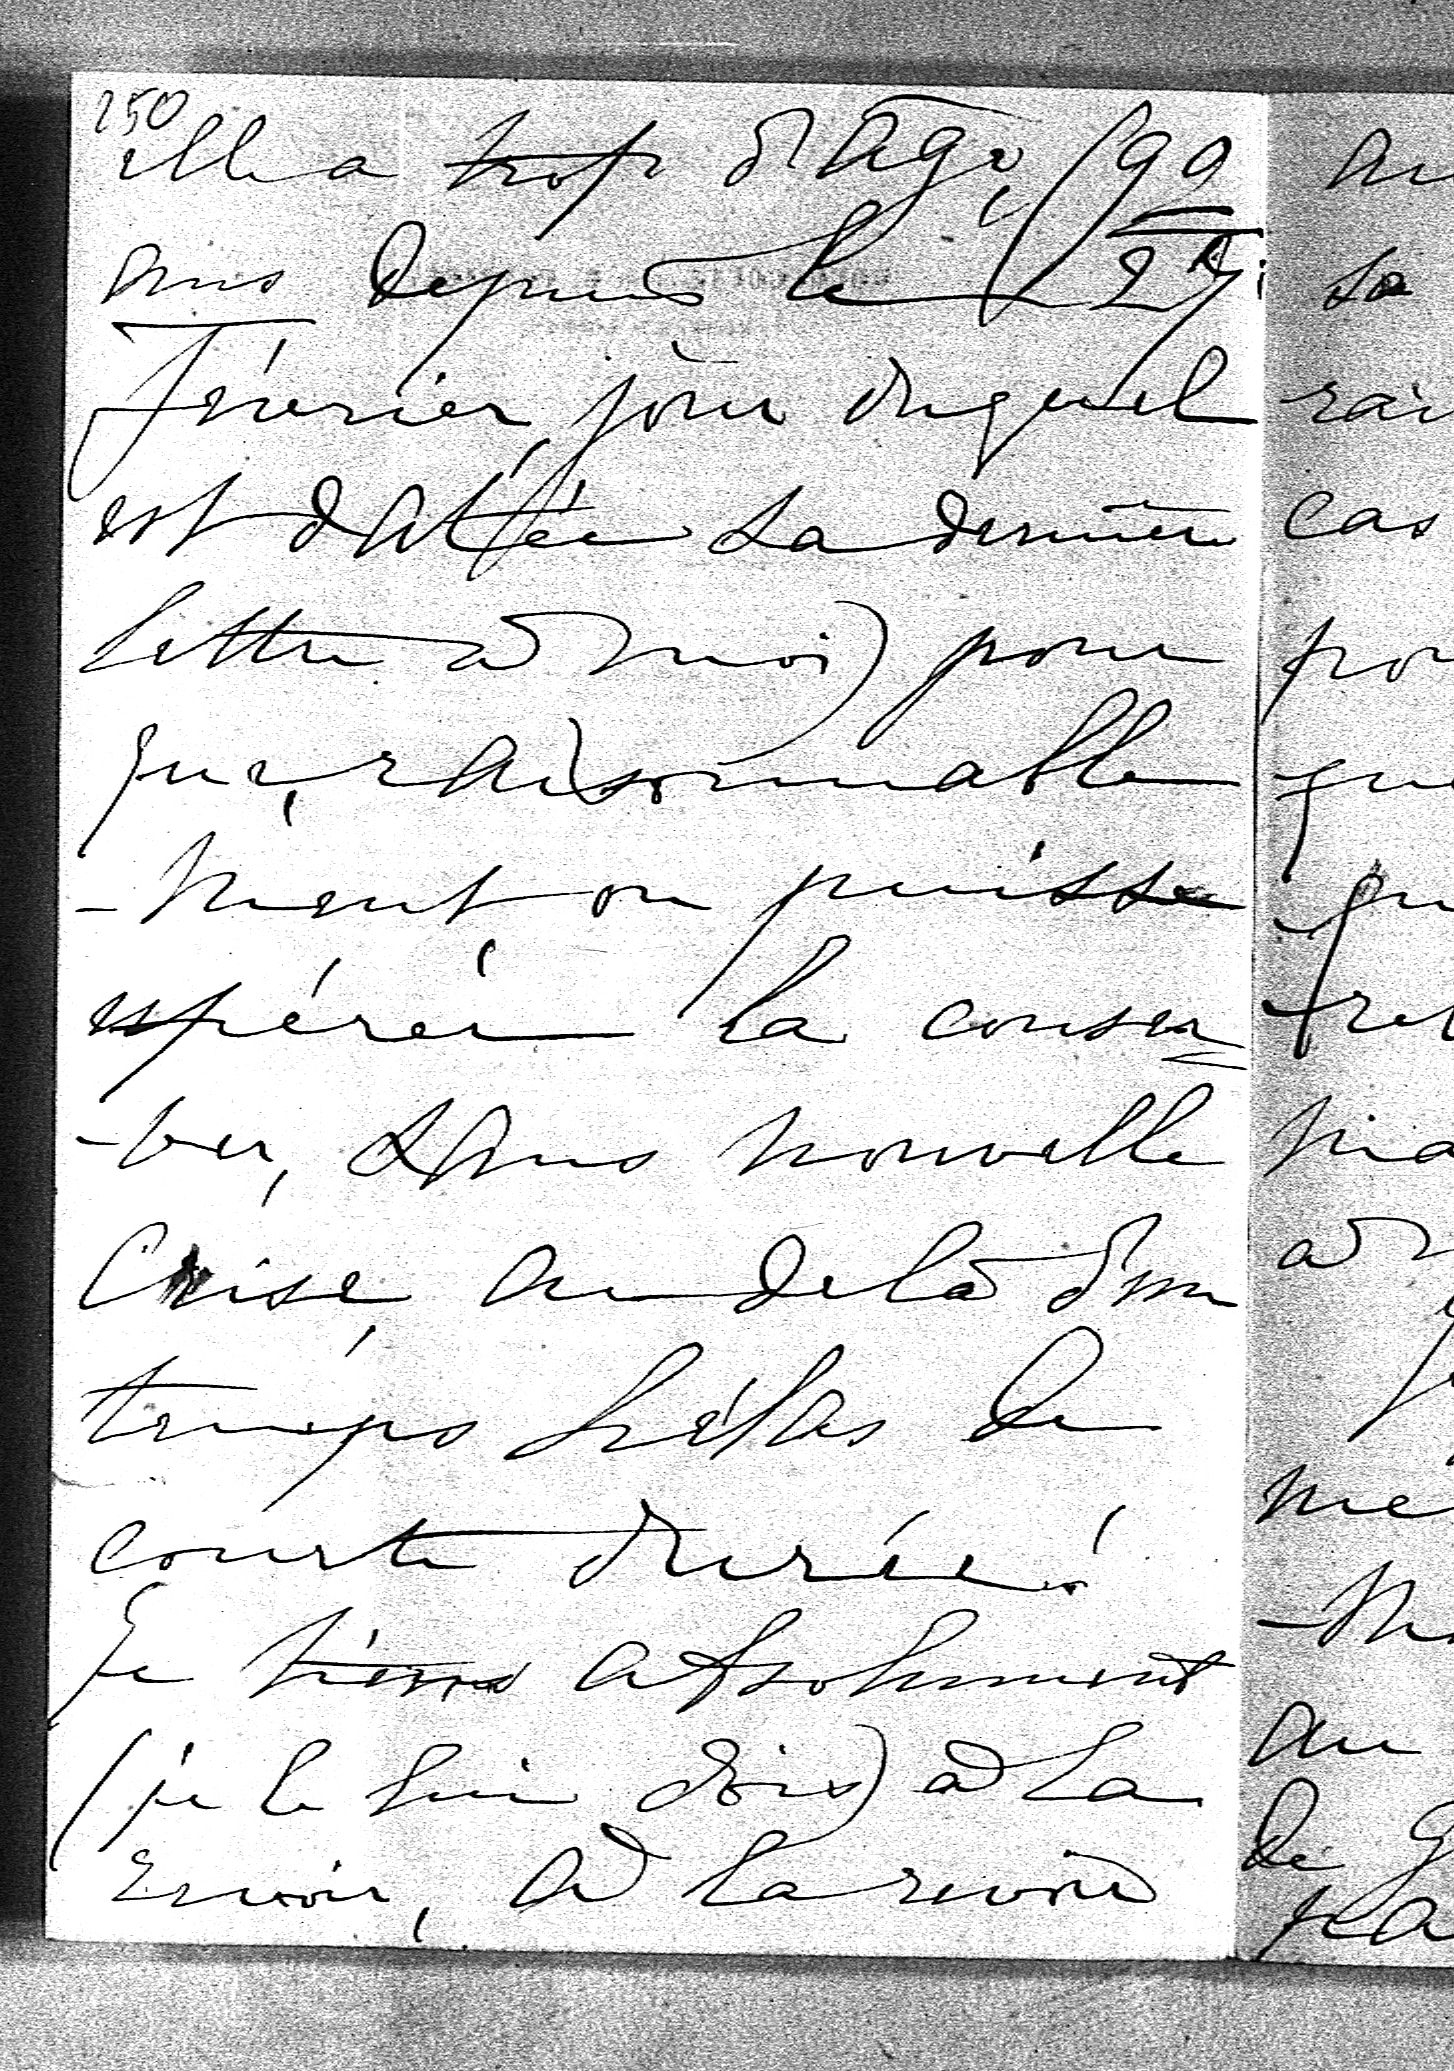 250
elle a trop d'âge, (90
ans depuis le 27
Février, jour duquel
est datée sa dernière
lettre à moi) pour
que, raisonnable
-ment on puisse
espérer la conser
-ver, sans nouvelle
crise, au delà d'un
temps hélas de
courte durée!
Je tiens absolument
(je le lui dois) à la
revoir, à la revoir
au
sa
cas
à
au
de